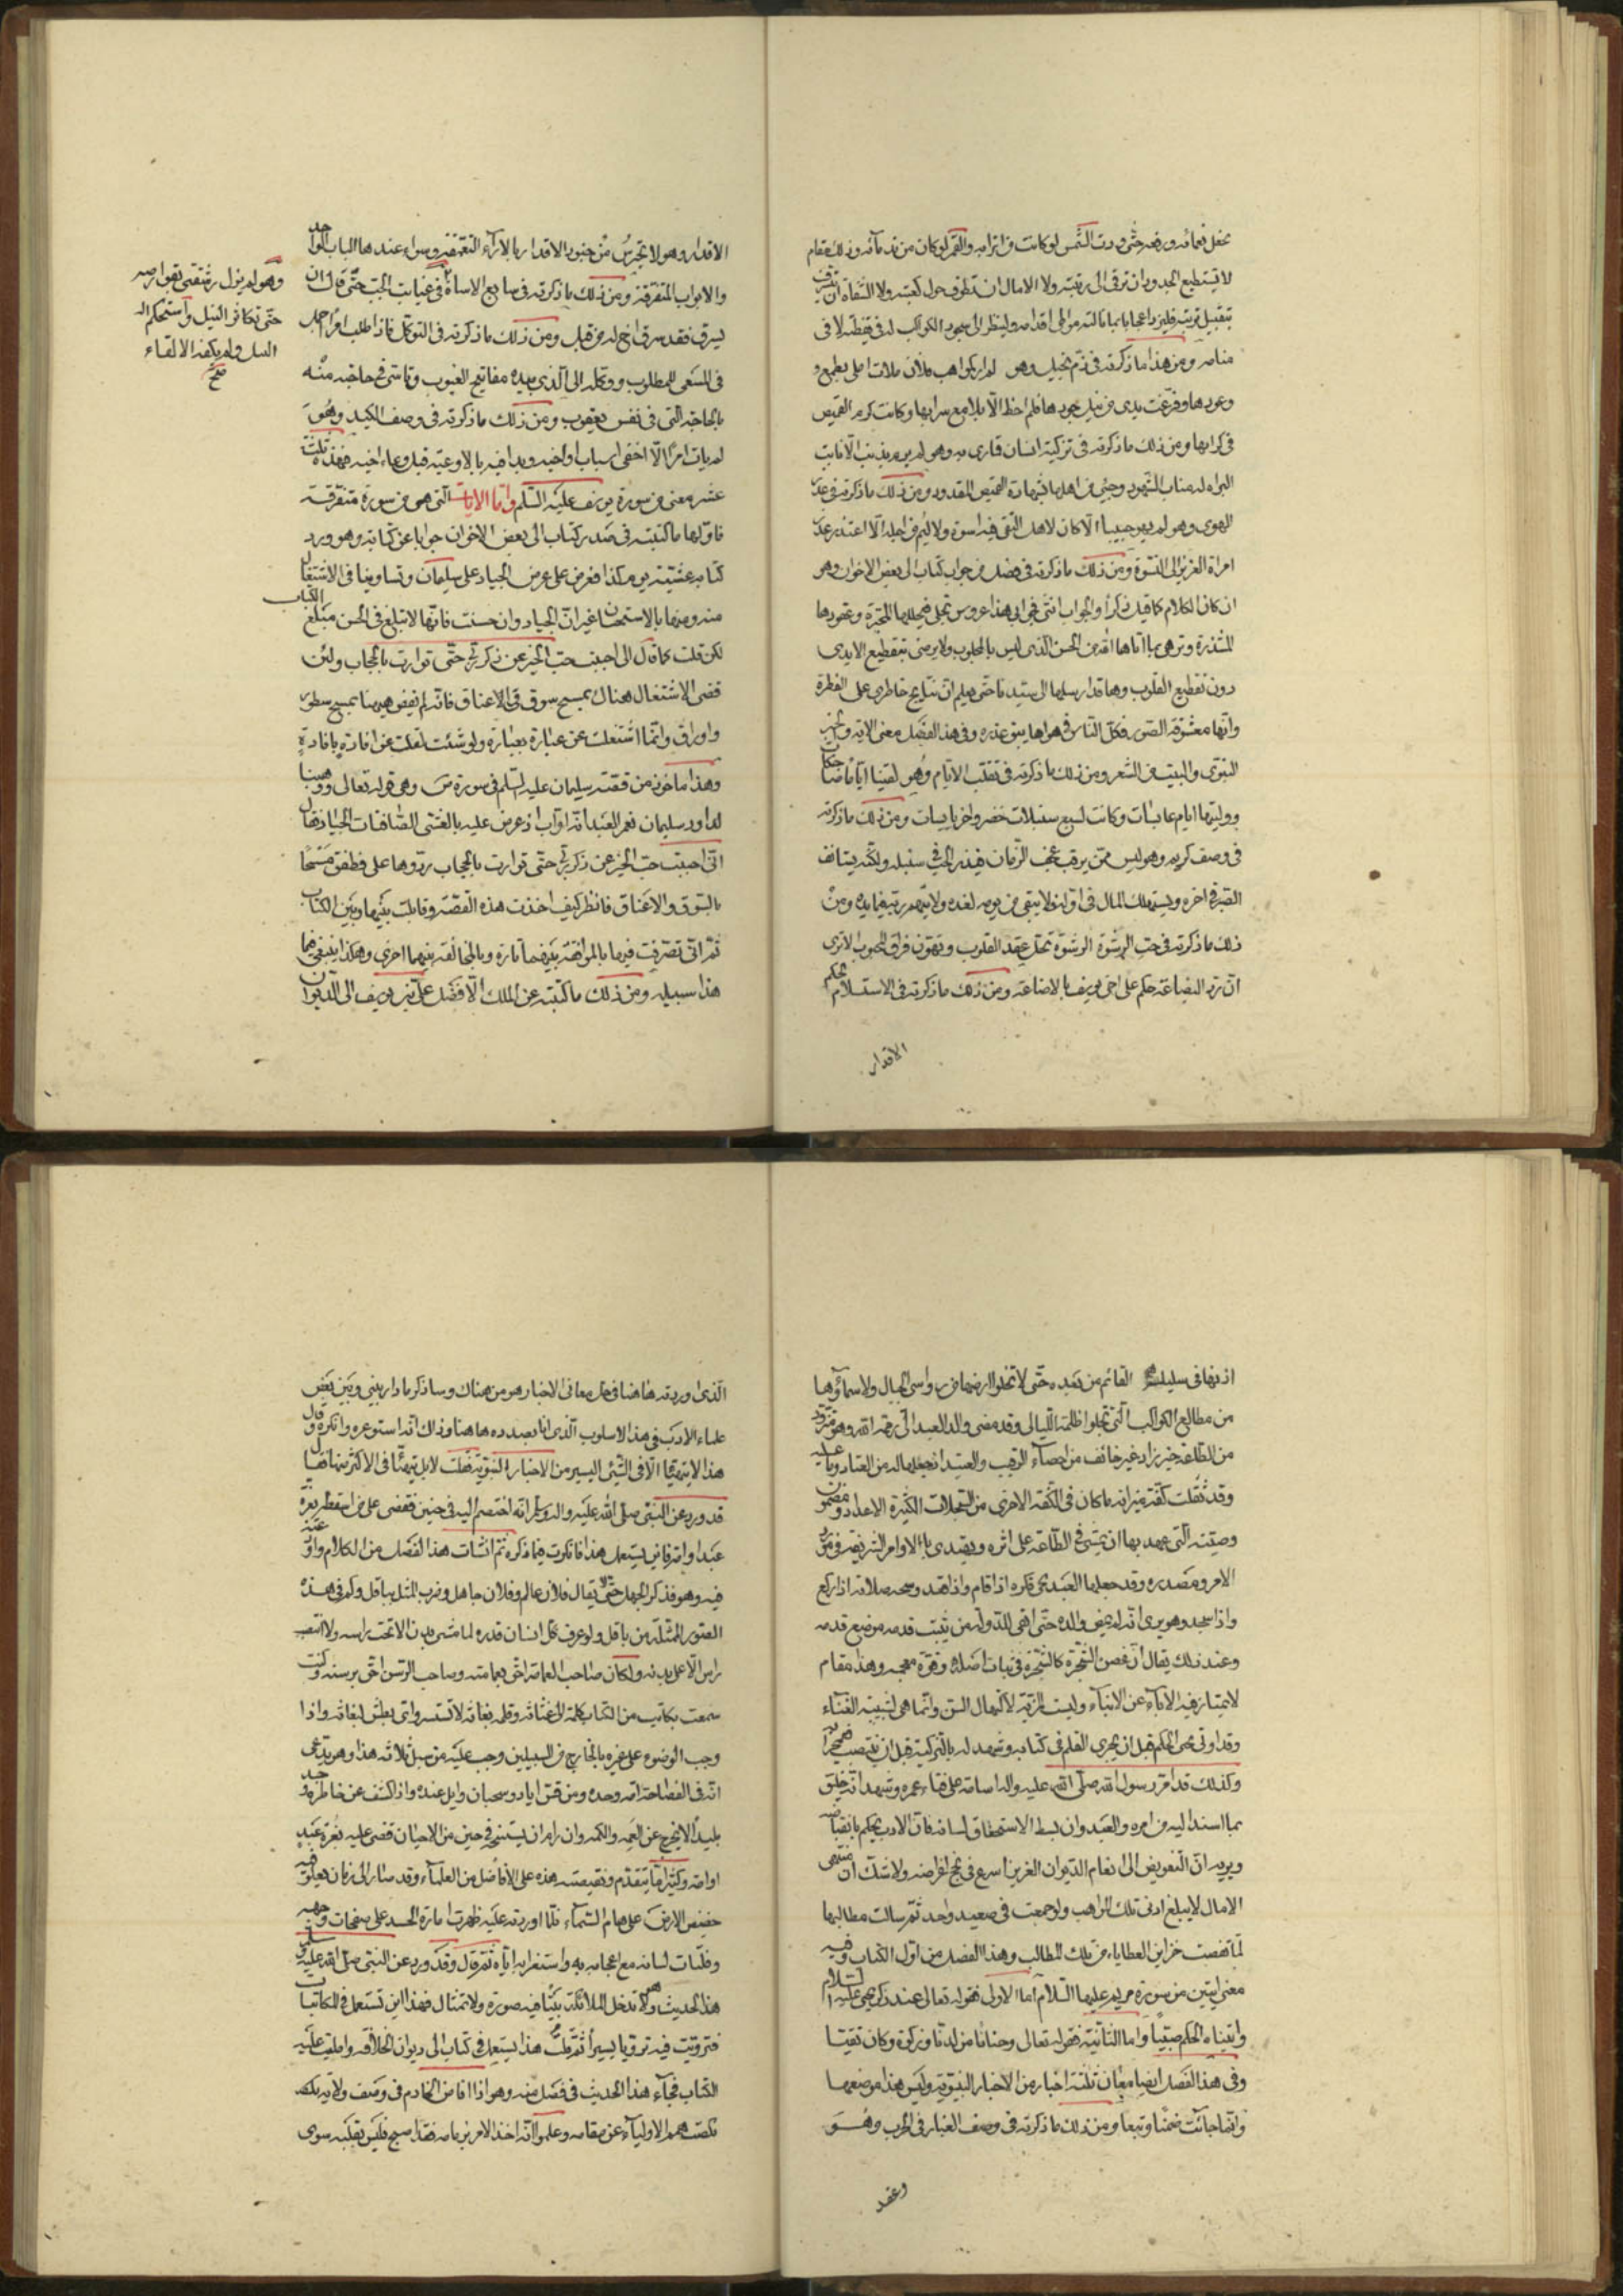 لا يستطيع الجدود ان ترقى الى رتبته ولا الامال ان تطوف حول كعبته ولا الشفاه ان تتشرف
بتقبيل تربته فليزد اعجابا بما نالته مواطئ اقدامه ولينظر الى سجود الكواكب له في يقظته لا في
منامه ومن هذا ما ذكرته في ذم بخيل وهو لم ار كمواهب فلان ملأت املي بطمع
وعودها وفرغت يدي من نيل جودها فلم احظ الا بلامع سرابها وكانت كدم القميص
في كذابها ومن ذلك ما ذكرته في تزكية انسان
ومن ذلك ما ذكرته في
الهوى وهو لم يهو حبيبا الا كان لاهل التقى فيه اسوة ولا ليم من اجله الا اعتذر عذر
امراة العزيز الى النسوة ومن ذلك ما ذكرته في فصل من جواب كتاب الى بعض الاخوان وهو
ان كان الكلام كما قيل ذكرا والجواب انثى فجوابي هذا عروس تجلى في حللها المحبرة وعقودها
المشذرة وتزهى بما اتاها الله من الحسن الذي ليس بالمجلوب ولا يرضى بتقطيع الايدي
دون تقطيع القلوب وها قد ارسلتها الى سيدنا حتى يعلم ان نتايج خاطري على الفطرة
وانها معشوقة الصور فكل الناس في هواها بنو عذره وفي هذا الفصل معنى الاية والخبر
النبوي والبيت من الشعر ومن ذلك ما ذكرته في تقلب الايام وهو لقينا اياما ضاحكات
ووليتها ايام عابسات وكانت كسبع سنبلات خضر واخر يابسات ومن ذلك ما ذكرته
في وصف كريم وهو ليس ممن يرقب عجف الزمان فيذر الحب في سنبله ولكنه يستانف
الصبر في اخره ويستهلك المال في اوله ولا يبقى من يومه لغده ولا يتهم ربه فيما بيده ومن
ذلك ما ذكرته في حب الرشوة الرشوة تحل عقد القلوب وتهون فراق المحبوب الا ترى
ان رد البضاعة حكم على اخي يوسف بالاضاعة ومن ذلك ما ذكرته في الاستسلام لحكم
الاقدار
الاقدار وهو لا يحترس من جنود الاقدار بالاراء المتعمقة وسواء عندها الباب الواحد
والابواب المتفرقة ومن ذلك ما ذكرته في صانع الاساءة في غيابت الجب حتى قال ان
يسرق فقد سرق اخ له من قبل ومن ذلك ما ذكرته في التوكل فاذا طلب امرا اجمل
في السعي للمطلوب ووكله الى الذي بيده مفاتيح الغيوب وتاسى في حاجته منه
بالحاجة التي في نفس يعقوب ومن ذلك ما ذكرته في وصف الكيد وهو
لم يات امرا الا اخفى اسباب اواخيه وبدا فيه بالاوعية قبل وعاء اخيه فهذه ثلثة
عشر معنى من سورة يوسف عليه السلم واما الايات التي هي من سورة متفرقة
فاولها ما كتبته في صدر كتاب الى بعض الاخوان جوابا عن كتابه وهو ورد
كتابه عشية يوم كذا فعرض علي عرض الجياد على سليمان وتساوينا في الاشتغال
منه ومنها بالاستحسان غير ان الجياد وان حسنت فانها لا تبلغ في الحسن مبلغ الكتاب
لكن قلت كما قال اني احببت حب الخير عن ذكر ربي حتى توارت بالحجاب ولئن
قضى الاشتغال هناك بمسح سوق في الاعناق فانه لم يفض ههنا بمسح سطور
واوراق وانما اشتغلت عن عبارة بعبارة ولو شئت لقلت عن افادة بافادة
وهذا ماخوذ من قصة سليمان عليه السلم في سورة ص وهي قوله تعالى ووهبنا
لداود سليمان نعم العبد انه اواب اذ عرض عليه بالعشي الصافنات الجياد فقال
اني احببت حب الخير عن ذكر ربي حتى توارت بالحجاب ردوها علي فطفق مسحا
بالسوق والاعناق فانظر كيف اخذت هذه القصة وقابلت بينها وبين الكتاب
ثم اني تصرفت فيها بالموافقة بينهما تارة وبالمخالفة بينهما اخرى وهكذا ينبغي فيما
هذا سبيله ومن ذلك ما كتبته عن الملك الافضل علي بن يوسف الى الديوان
وهو لم يزل
حتى تكاثر النبل واستحكم
النبل ولم يكفه الالقاء
صح
القائم من بعده حتى لا تخلوا ارضها من رواسي الجبال ولا سماؤها
من مطالع الكواكب التي تجلوا ظلمة الليالي وقد مضى والد العبد الى رحمة الله وهو متزود
من الطاعة خير زاد غير خائف من احصاء الرقيب والعتيد
وقد ثقلت كفة ميزانه ما كان في الكفة الاخرى من السجلات الكثيرة الاعداد ومضمون
وصيته التي عهد بها ان يمشي في الطاعة على اثره ويهتدي بالاوامر الشريفة في مورد
الامر ومصدره وقد جعلها العبد نجي فكره اذا قام واذا قعد وسبحة صلاته اذا ركع
واذا سجد وهو يرى انه لم يمض والده حتى ابقى للدولة من يثبت قدمه موضع قدمه
وعند ذلك يقال ان غصن الشجرة كالشجرة في نبات اصله وقوة معجمه وهذا مقام
لا يمتاز فيه الاباء عن الابناء وليست المزية لاكتهال السن وانما هي لشبيبة الغناء
وقد اوتي يحيى الحكم قبل ان يجري القلم في كتابه وشهد له بالتزكية قبل ان ينتصب في محرابه
وكذلك قد امر رسول الله صلى الله عليه واله اسامة على فتاء عمره وشهد انه خليق
بما اسند اليه من امره والعبد وان بسط الاستحقاق لسانه فان الادب يحكم بانقباضه
ويريه ان التفويض الى انعام الديوان العزيز اسرع في نجح اغراضه ولا شك ان منتهى
الامال لا يبلغ ادنى تلك المواهب ولو جمعت في صعيد واحد ثم سالت مطالبها
لما نقصت خزاين العطايا من تلك المطالب وهذا الفصل من اول الكتاب وفيه
معنى ايتين من سورة مريم عليها السلام اما الاولى فقوله تعالى عند ذكر يحيى عليه السلام
واتيناه الحكم صبيا واما الثانية فقوله تعالى وحنانا من لدنا وزكوة وكان تقيا
وفي هذا الفصل ايضا معان ثلثة اخبار من الاخبار النبوية وليس هذا موضعها
وانما جاءت ضمنا وتبعا ومن ذلك ما ذكرته في وصف الغبار في الحرب وهو
وعقد
الذي اوردته هاهنا في حل معاني الاخبار هو من هناك وساذكر ما دار بيني وبين بعض
علماء الادب في هذا الاسلوب الذي انا بصدده هاهنا وذاك انه استوعره وانكره وقال
هذا لا يتهيا الا في الشيء اليسير من الاخبار النبوية فقلت لا بل يتهيا في الاكثر منها فقال
قد ورد عن النبي صلى الله عليه واله وسلم انه اختصم اليه في جنين فقضى على من اسقطه بغرة
عبد او امة فاين يستعمل هذا فافكرت فيما ذكره ثم انشات هذا الفصل من الكلام واودعته
فيه وهو قد ذكر الجهل حتى لا يقال فلان عالم وفلان جاهل وضرب المثل بباقل وكم في هذه
الصور الممثلة من باقل ولو عرف كل انسان قدره لما مشى بدن الا تحت راسه ولا انتصب
راس الا على بدنه ولكان صاحب العمامة احق بعمامته وصاحب الرسن احق برسنه وكنت
سمعت بكاتب من الكتاب كلمه الى غثاثه وقلمه بغاثه لا تستنسر واني بطش لبغاثه واذا
وجب الوضوء على غيره بالخارج من السبيلين وجب عليه من سبل ثلاثة هذا وهو يدعي
انه في الفصاحة امة وحده ومن قس اياد وسحبان وايل عنده واذا كشف عن خاطره وجد
بليدا لا يخرج عن العمه والكمه وان رام ان يستنتج في حين من الاحيان قضى عليه بغرة عبد
او امة وكثيرا ما يتقدم ونقيصته هذه على الافاضل من العلماء وقد صار الى زمان يعلو فيه
حضيض الارض على هام السماء فلما اوردته عليه ظهرت امارة الحسد على صفحات وجهه
وفلتات لسانه مع اعجابه به واستغرابه اياه ثم قال وقد ورد عن النبي صلى الله عليه وسلم
هذا الحديث وهو لا تدخل الملائكة بيتا فيه صورة ولا تمثال فهذا اين تستعمل في المكاتبات
فترويت فيه ترويا يسيرا ثم قلت هذا يستعمل في كتاب الى ديوان الخلافة وامليت عليه
الكتاب فجاء هذا الحديث في فصل منه وهو اذا افاض الخادم في وصف ولائه
نكصت همم الاولياء عن مقامه وعلموا انه اخذ الامر بزمامه فقد اصبح وليس بقلبه سوى